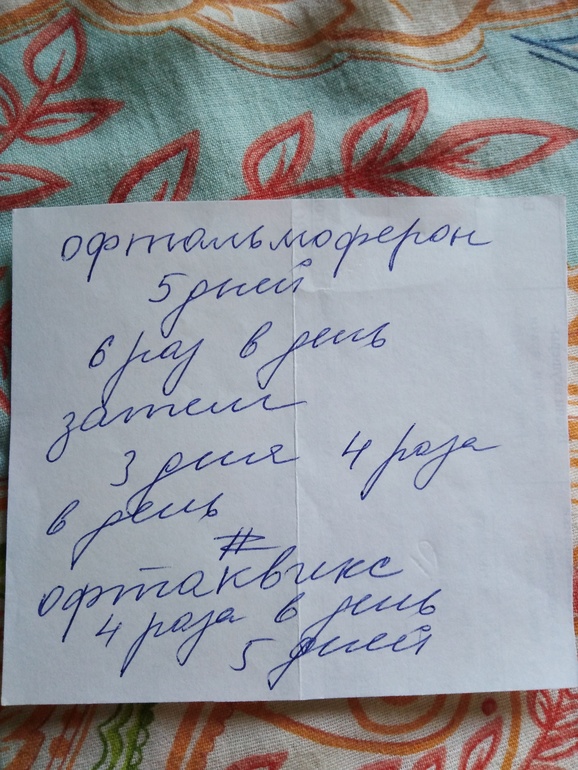 офтальмоферон
5 дней
6 раз в день
затем
3 дня 4 раза
в день
#
офтаквикс
4 раза в день
5 дней